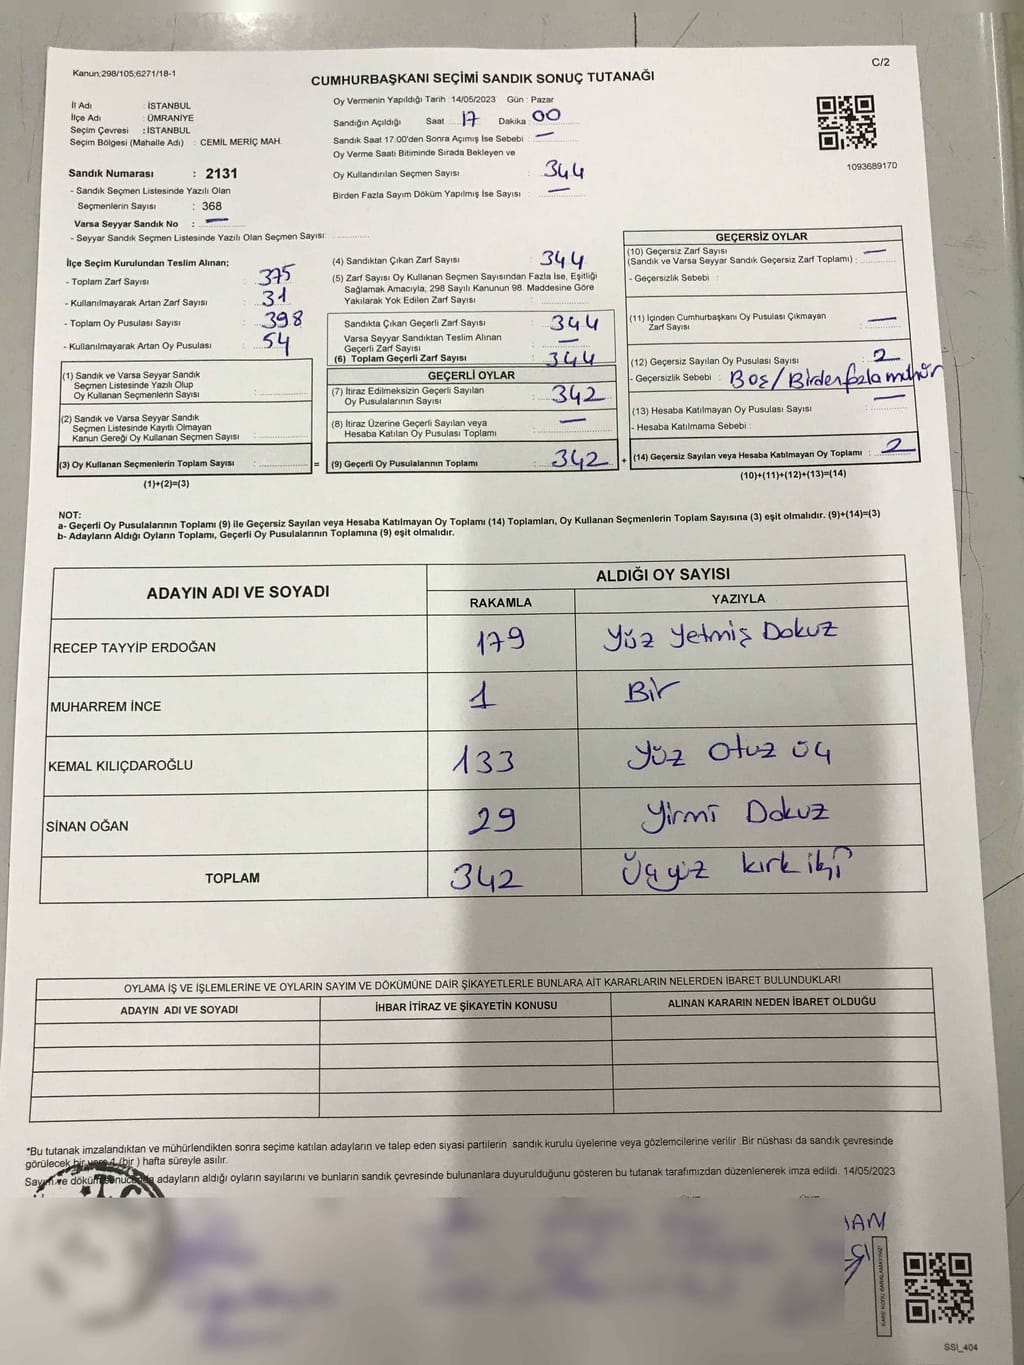 Kanun;298/105;6271/18-1
C/2
CUMHURBAŞKANI SEÇİMİ SANDIK SONUÇ TUTANAĞI
İl Adı : İSTANBUL
İlçe Adı : ÜMRANİYE
Seçim Çevresi : İSTANBUL
Seçim Bölgesi (Mahalle Adı) : CEMİL MERİÇ MAH.
Sandık Numarası : 2131
- Sandık Seçmen Listesinde Yazılı Olan
Seçmenlerin Sayısı : 368
Varsa Seyyar Sandık No : —
- Seyyar Sandık Seçmen Listesinde Yazılı Olan Seçmen Sayısı:
Oy Vermenin Yapıldığı Tarih : 14/05/2023 Gün : Pazar
Sandığın Açıldığı Saat : 17 Dakika : 00
Sandık Saat 17:00'den Sonra Açımış İse Sebebi : —
Oy Verme Saati Bitiminde Sırada Bekleyen ve
Oy Kullandırılan Seçmen Sayısı : 344
Birden Fazla Sayım Döküm Yapılmış İse Sayısı : —
1093689170
İlçe Seçim Kurulundan Teslim Alınan;
- Toplam Zarf Sayısı : 375
- Kullanılmayarak Artan Zarf Sayısı : 31
- Toplam Oy Pusulası Sayısı : 398
- Kullanılmayarak Artan Oy Pusulası : 54
(1) Sandık ve Varsa Seyyar Sandık
Seçmen Listesinde Yazılı Olup
Oy Kullanan Seçmenlerin Sayısı :
(2) Sandık ve Varsa Seyyar Sandık
Seçmen Listesinde Kayıtlı Olmayan
Kanun Gereği Oy Kullanan Seçmen Sayısı :
(3) Oy Kullanan Seçmenlerin Toplam Sayısı : =
(1)+(2)=(3)
(4) Sandıktan Çıkan Zarf Sayısı : 344
(5) Zarf Sayısı Oy Kullanan Seçmen Sayısından Fazla İse, Eşitliği
Sağlamak Amacıyla, 298 Sayılı Kanunun 98. Maddesine Göre
Yakılarak Yok Edilen Zarf Sayısı :
Sandıkta Çıkan Geçerli Zarf Sayısı : 344
Varsa Seyyar Sandıktan Teslim Alınan
Geçerli Zarf Sayısı : —
(6) Toplam Geçerli Zarf Sayısı : 344
GEÇERLİ OYLAR
(7) İtiraz Edilmeksizin Geçerli Sayılan
Oy Pusulalarının Sayısı : 342
(8) İtiraz Üzerine Geçerli Sayılan veya
Hesaba Katılan Oy Pusulası Toplamı : —
(9) Geçerli Oy Pusulalarının Toplamı : 342 +
GEÇERSİZ OYLAR
(10) Geçersiz Zarf Sayısı
(Sandık ve Varsa Seyyar Sandık Geçersiz Zarf Toplamı) : —
- Geçersizlik Sebebi :
(11) İçinden Cumhurbaşkanı Oy Pusulası Çıkmayan
Zarf Sayısı : —
(12) Geçersiz Sayılan Oy Pusulası Sayısı : 2
- Geçersizlik Sebebi : Boş/Birdenfazla mühür
(13) Hesaba Katılmayan Oy Pusulası Sayısı : —
- Hesaba Katılmama Sebebi :
(14) Geçersiz Sayılan veya Hesaba Katılmayan Oy Toplamı : 2
(10)+(11)+(12)+(13)=(14)
NOT:
a- Geçerli Oy Pusulalarının Toplamı (9) ile Geçersiz Sayılan veya Hesaba Katılmayan Oy Toplamı (14) Toplamları, Oy Kullanan Seçmenlerin Toplam Sayısına (3) eşit olmalıdır. (9)+(14)=(3)
b- Adayların Aldığı Oyların Toplamı, Geçerli Oy Pusulalarının Toplamına (9) eşit olmalıdır.
ADAYIN ADI VE SOYADI
ALDIĞI OY SAYISI
RAKAMLA YAZIYLA
RECEP TAYYİP ERDOĞAN 179 Yüz Yetmiş Dokuz
MUHARREM İNCE 1 Bir
KEMAL KILIÇDAROĞLU 133 Yüz otuz üç
SİNAN OĞAN 29 Yirmi Dokuz
TOPLAM 342 Üçyüz kırk iki
OYLAMA İŞ VE İŞLEMLERİNE VE OYLARIN SAYIM VE DÖKÜMÜNE DAİR ŞİKAYETLERLE BUNLARA AİT KARARLARIN NELERDEN İBARET BULUNDUKLARI
ADAYIN ADI VE SOYADI İHBAR İTİRAZ VE ŞİKAYETİN KONUSU ALINAN KARARIN NEDEN İBARET OLDUĞU
*Bu tutanak imzalandıktan ve mühürlendikten sonra seçime katılan adayların ve talep eden siyasi partilerin sandık kurulu üyelerine veya gözlemcilerine verilir .Bir nüshası da sandık çevresinde
görülecek bir yere 1 (bir ) hafta süreyle asılır.
Sayım ve döküm sonucunda adayların aldığı oyların sayılarını ve bunların sandık çevresinde bulunanlara duyurulduğunu gösteren bu tutanak tarafımızdan düzenlenerek imza edildi. 14/05/2023
KARE KODU KARALAMAYINIZ!
SSI_404